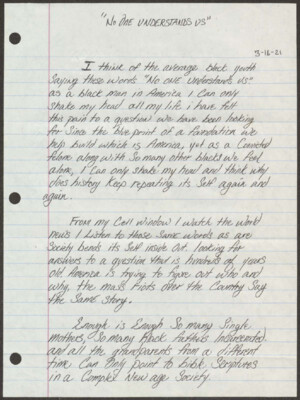 "No One Understands Us"
3-16-21
I think of the average black youth
Saying these words "No one understands us"
as a black man in America I can only
shake my head all my life i have felt
this pain to a question we have been looking
for Since the blue print of a foundation we
help build which is America, yet as a Convicted
felone along with So many other blacks we feel
alone, I can only shake my head and think why
does history Keep repeating its Self again and
again.
From my Cell window I watch the world
news I listen to those Same words as are
Society bends its Self inside out. looking for
answers to a question that is hundreds of years
old America is trying to figure out who and
why, the mass Riots over the Country Say
the Same story.
Enough is Enough So many Single
mothers, So many Black fathers Incarcerated
and all the grandparents from a different
time Can Only point to bible Scriptures
in a Complex New age Society.